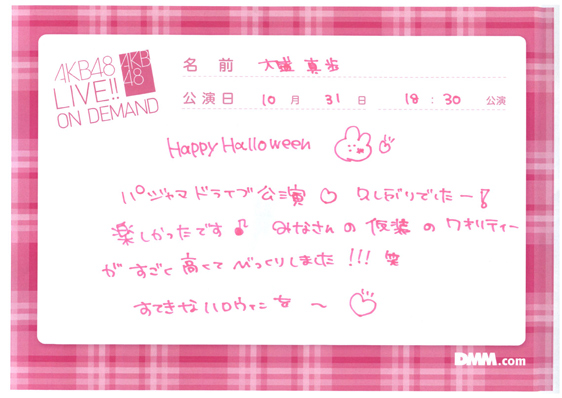 AKB48
LIVE!!
ON DEMAND
AKB
48
名前 大盛 真歩
公演日 10月 31日 18:30 公演
Happy Halloween
パジャマドライブ公演♡ 久しぶりでしたー!
楽しかったです♪ みなさんの仮装のクオリティー
がすごく高くてびっくりしました!!! 笑
すてきなハロウィンを 〜 ♡
DMM.com